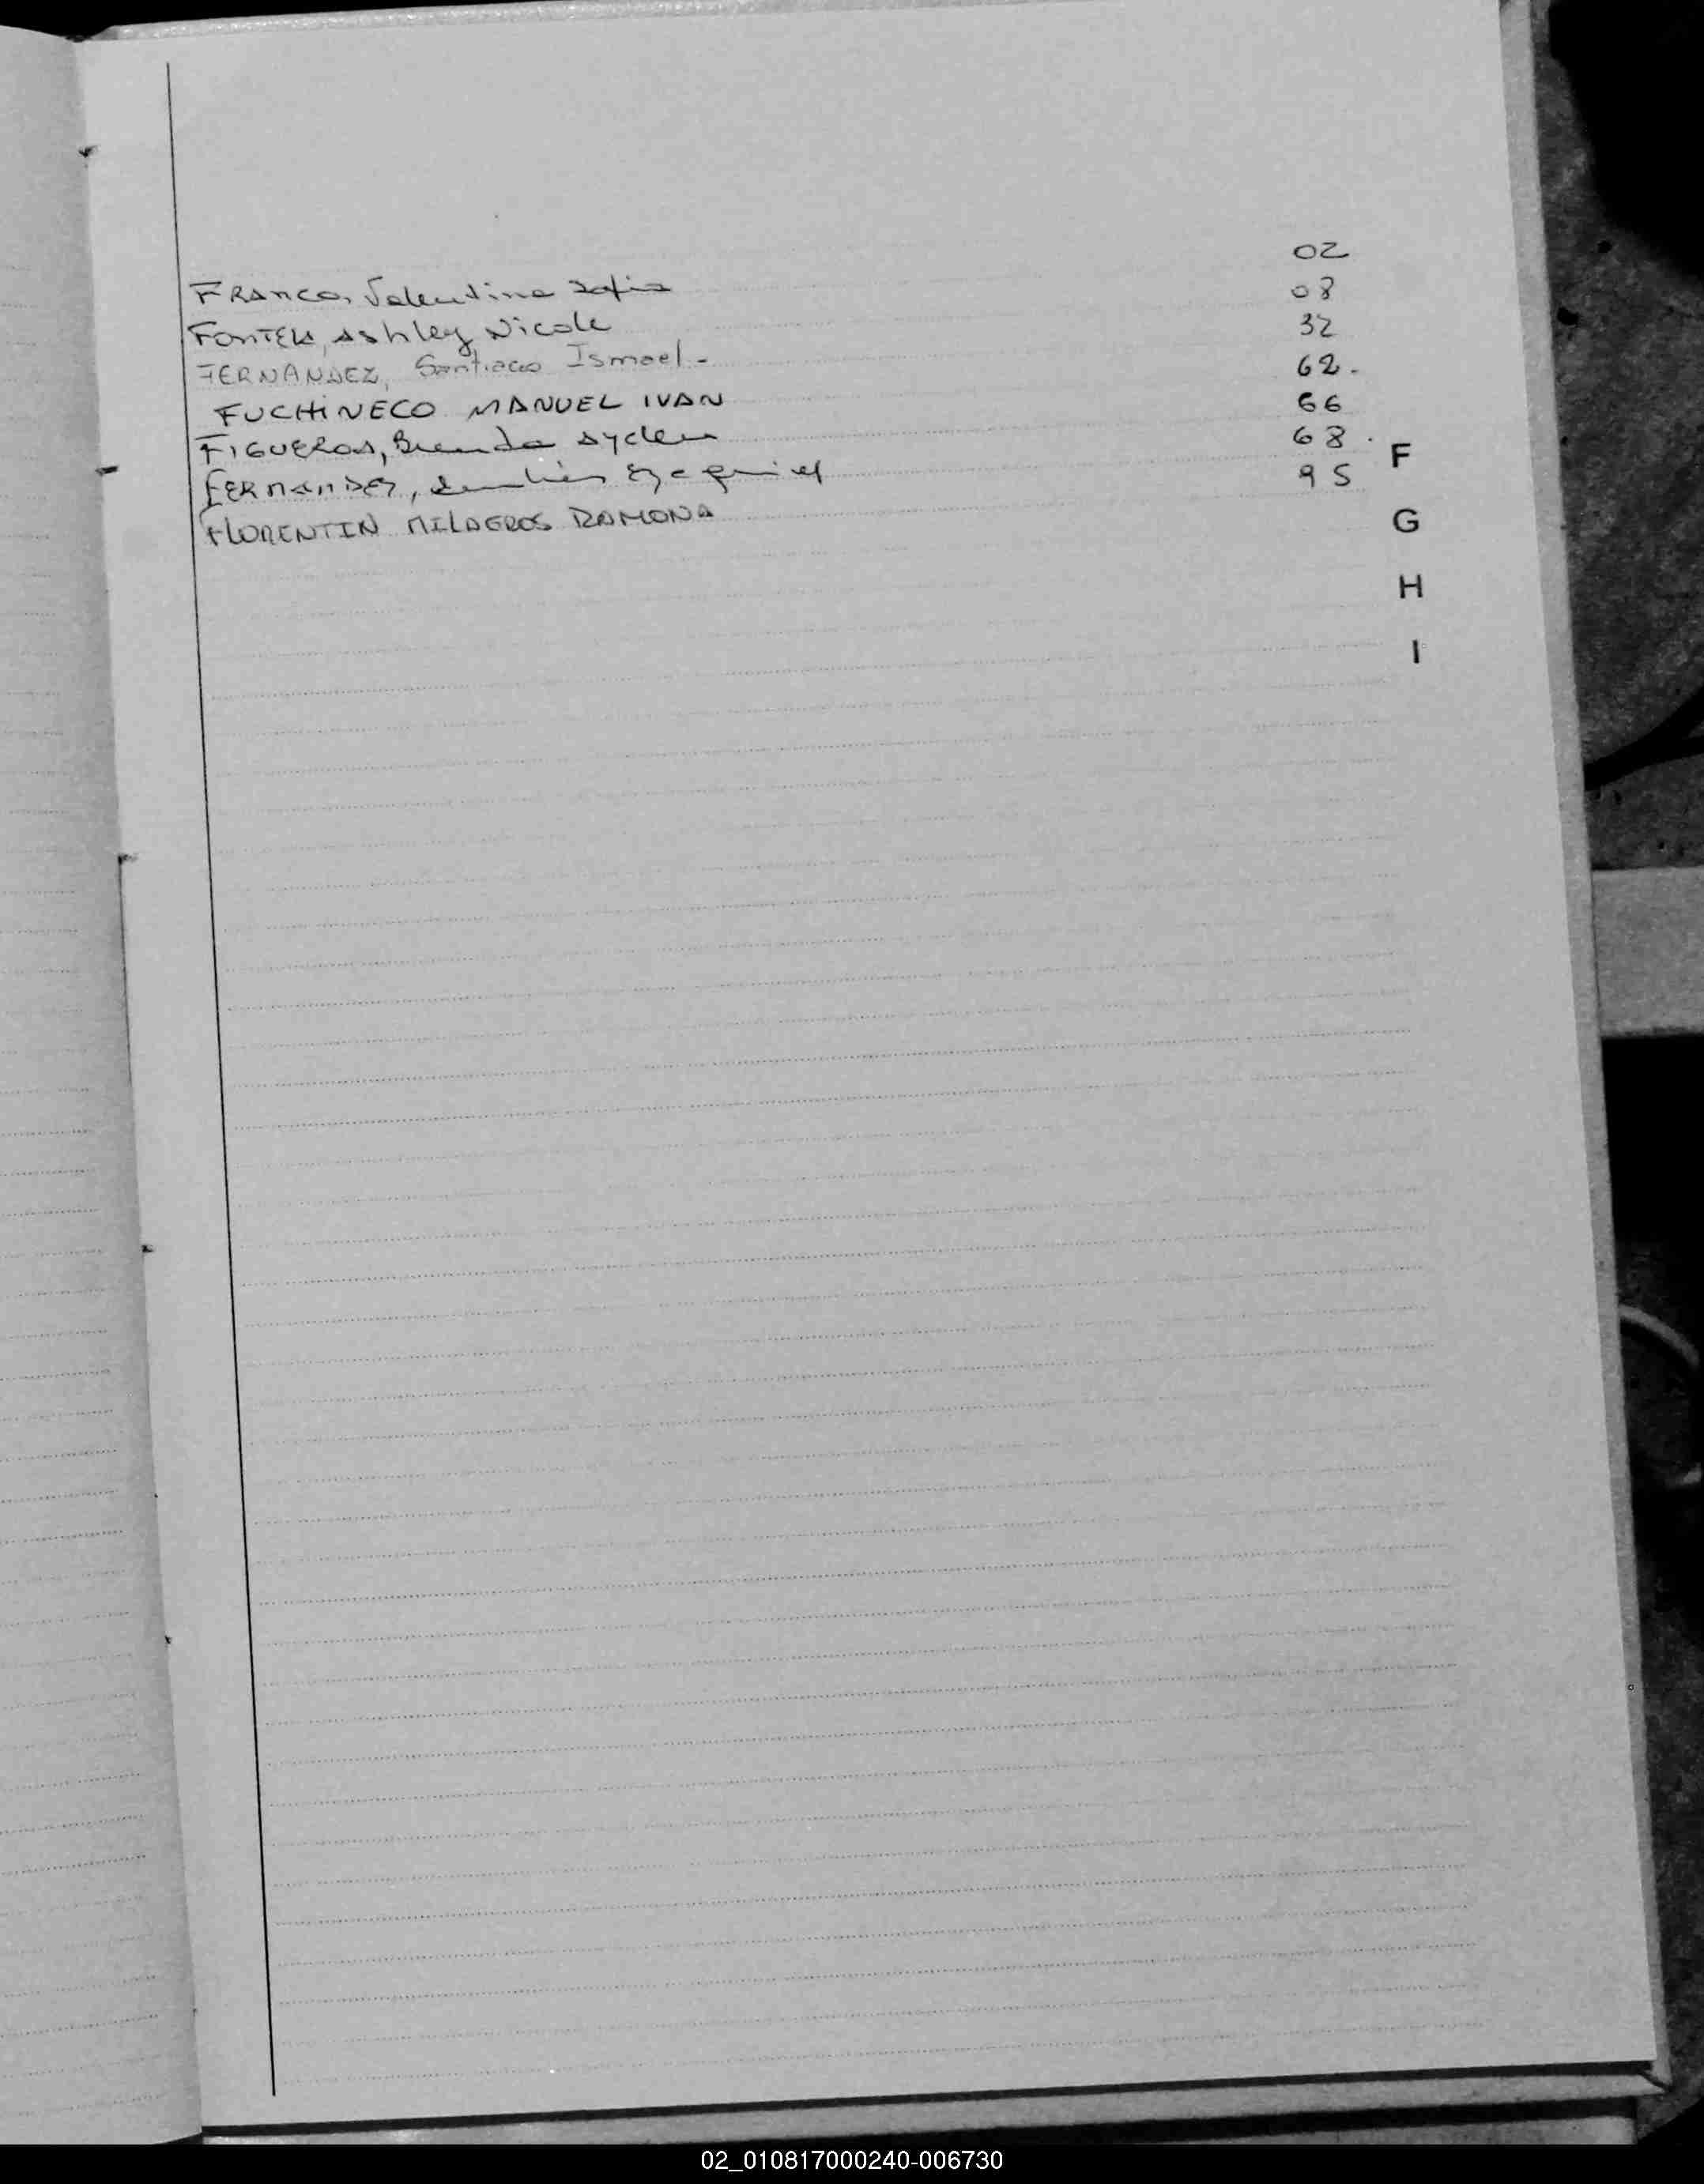 FRANCO, Valentina Sofia 02
FONTELA, Ashley Nicole 08
FERNANDEZ, Santiago Ismael - 32
FUCHINECO MANUEL IVAN 62.
FIGUEROA, Brenda Ayelen 66
FERNANDEZ, Ezequiel 68.
FLORENTIN MILAGROS RAMONA 95
F
G
H
I
02_010817000240-006730